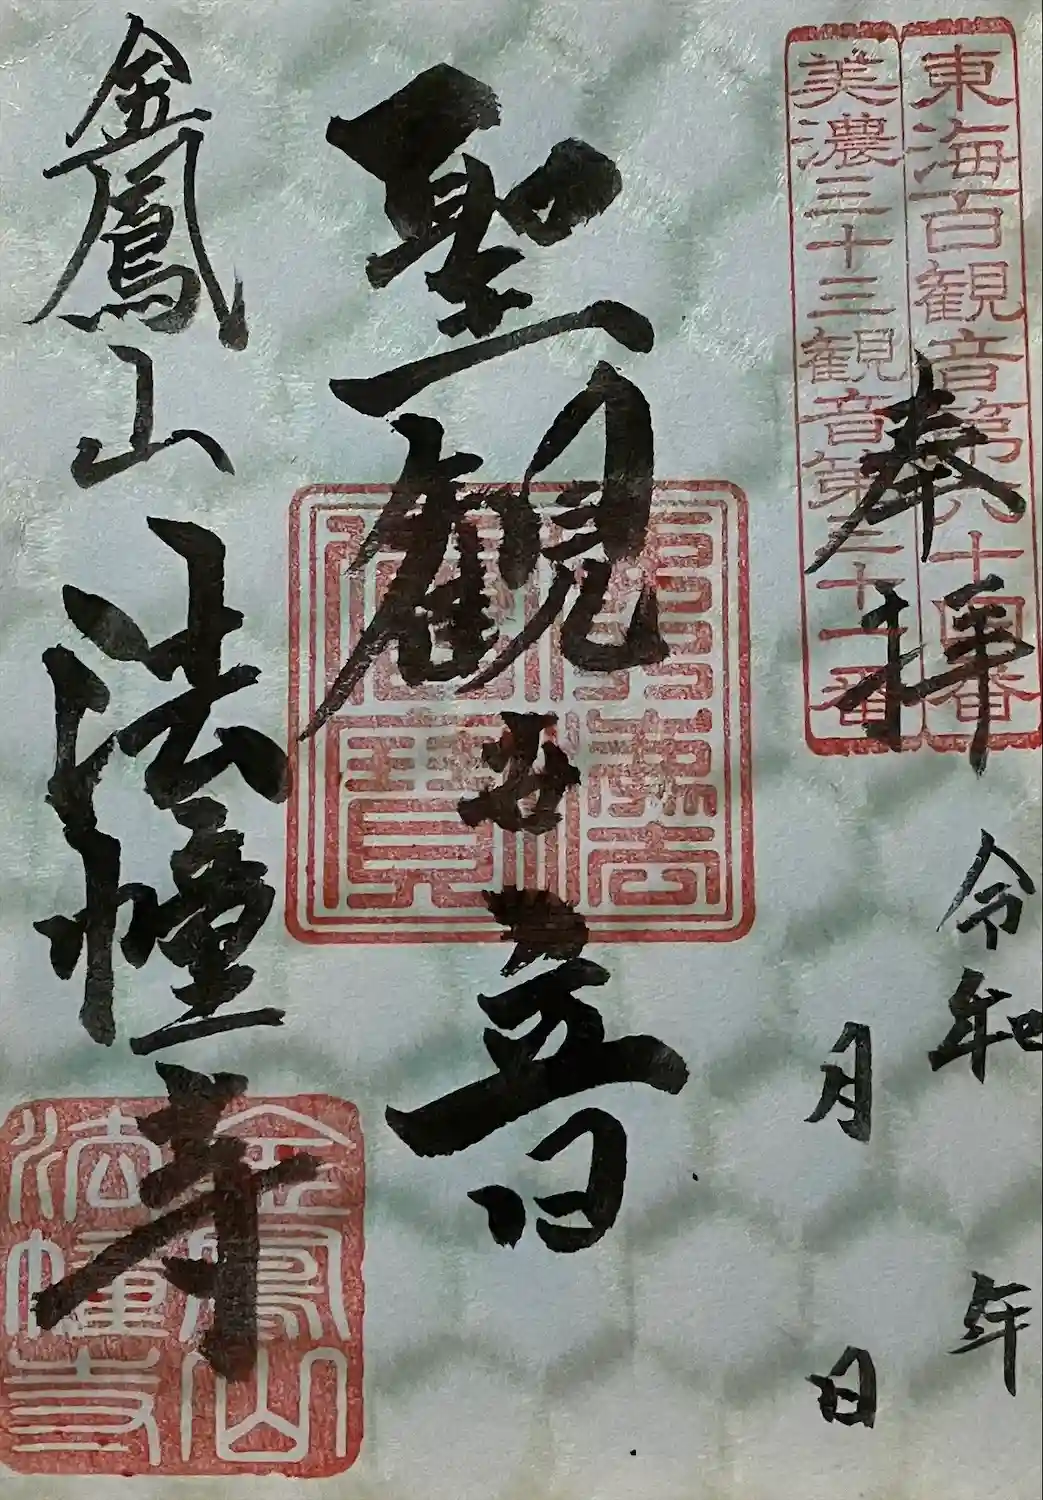 東海百観音第六十四番
美濃三十三観音第三十一番
奉拝
令和 年
月 日
聖観世音
佛法僧寳
金鳳山 法幢寺
金鳳山
法幢寺